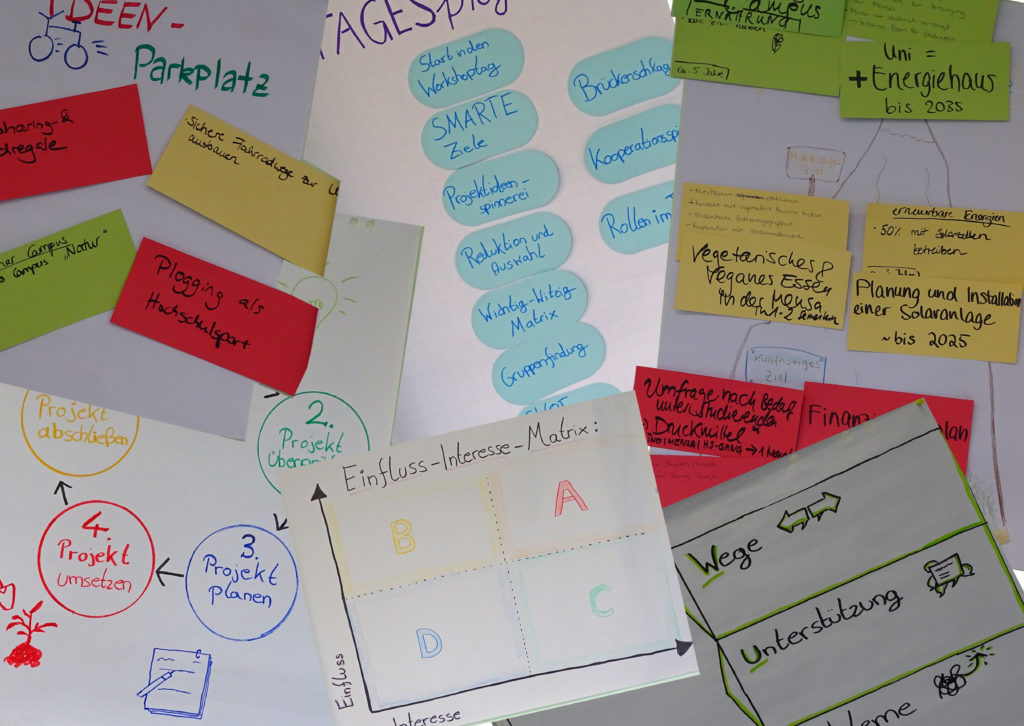 IDEEN-
Parkplatz
sharing-&
Sichere Fahrradwege zur U
ausbauen
Campus
Campus „Natur"
Plogging als
Hochschulsport
TAGESplan
Start in den
Workshoptag
SMARTE
Ziele
Projektideen-
spinnerei
Reduktion und
Auswahl
Wichtig-Witzig-
Matrix
Gruppenfindung
SWOT
Brückenschlag
Kooperationssp
Rollen im T
Campus
ERNÄHRUNG
ca. 5 Jahre
Uni =
+ Energiehaus
bis 2035
Vegetarisches &
Veganes Essen
in der Mensa
in 1-2 Semestern
erneuerbare Energien
· 50% mit Solarzellen
betreiben
Planung und Installation
einer Solaranlage
~ bis 2025
Kurzfristiges
Ziel
Umfrage nach Bedarf
unter Studierenden
"Druckmittel"
Finanz
lan
Projekt
abschließen
2.
Projekt
3.
Projekt
planen
4.
Projekt
umsetzen
Einfluss-Interesse-Matrix:
B
A
D
C
Einfluss
Interesse
Wege
Unterstützung
leme